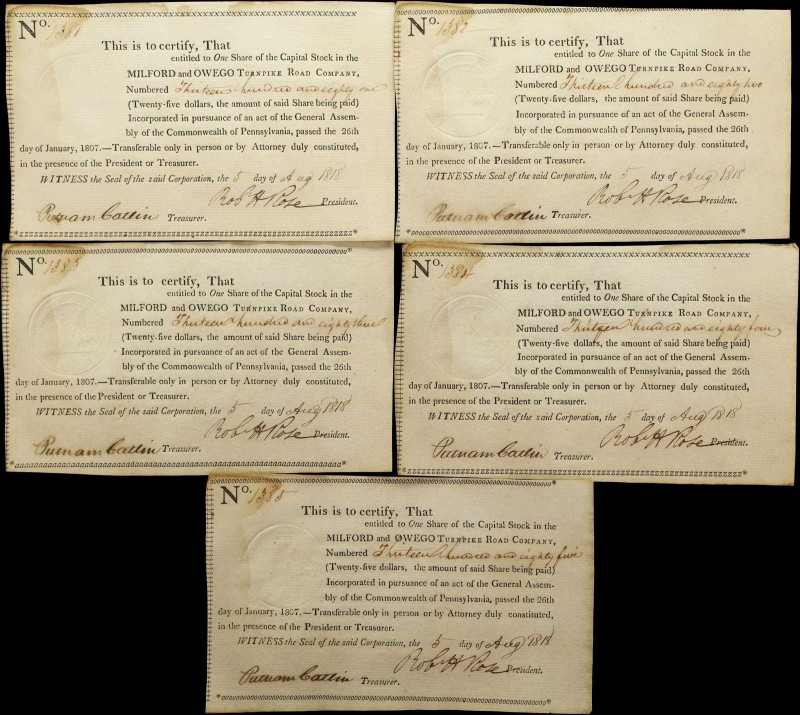 No. 1381
This is to certify, That
entitled to One Share of the Capital Stock in the
MILFORD and OWEGO TURNPIKE ROAD COMPANY,
Numbered Thirteen hundred and eighty one
(Twenty-five dollars, the amount of said Share being paid)
Incorporated in pursuance of an act of the General Assem-
bly of the Commonwealth of Pennsylvania, passed the 26th
day of January, 1807.—Transferable only in person or by Attorney duly constituted,
in the presence of the President or Treasurer.
WITNESS the Seal of the said Corporation, the 5 day of Aug 1818
Rob H Rose President.
Putnam Catlin Treasurer.
No. 1382
This is to certify, That
entitled to One Share of the Capital Stock in the
MILFORD and OWEGO TURNPIKE ROAD COMPANY,
Numbered Thirteen hundred and eighty two
(Twenty-five dollars, the amount of said Share being paid)
Incorporated in pursuance of an act of the General Assem-
bly of the Commonwealth of Pennsylvania, passed the 26th
day of January, 1807.—Transferable only in person or by Attorney duly constituted,
in the presence of the President or Treasurer.
WITNESS the Seal of the said Corporation, the 5 day of Aug 1818
Rob H Rose President.
Putnam Catlin Treasurer.
No. 1383
This is to certify, That
entitled to One Share of the Capital Stock in the
MILFORD and OWEGO TURNPIKE ROAD COMPANY,
Numbered Thirteen hundred and eighty three
(Twenty-five dollars, the amount of said Share being paid)
Incorporated in pursuance of an act of the General Assem-
bly of the Commonwealth of Pennsylvania, passed the 26th
day of January, 1807.—Transferable only in person or by Attorney duly constituted,
in the presence of the President or Treasurer.
WITNESS the Seal of the said Corporation, the 5 day of Aug 1818
Rob H Rose President.
Putnam Catlin Treasurer.
No. 1384
This is to certify, That
entitled to One Share of the Capital Stock in the
MILFORD and OWEGO TURNPIKE ROAD COMPANY,
Numbered Thirteen hundred and eighty four
(Twenty-five dollars, the amount of said Share being paid)
Incorporated in pursuance of an act of the General Assem-
bly of the Commonwealth of Pennsylvania, passed the 26th
day of January, 1807.—Transferable only in person or by Attorney duly constituted,
in the presence of the President or Treasurer.
WITNESS the Seal of the said Corporation, the 5 day of Aug 1818
Rob H Rose President.
Putnam Catlin Treasurer.
No. 1385
This is to certify, That
entitled to One Share of the Capital Stock in the
MILFORD and OWEGO TURNPIKE ROAD COMPANY,
Numbered Thirteen hundred and eighty five
(Twenty-five dollars, the amount of said Share being paid)
Incorporated in pursuance of an act of the General Assem-
bly of the Commonwealth of Pennsylvania, passed the 26th
day of January, 1807.—Transferable only in person or by Attorney duly constituted,
in the presence of the President or Treasurer.
WITNESS the Seal of the said Corporation, the 5 day of Aug 1818
Rob H Rose President.
Putnam Catlin Treasurer.